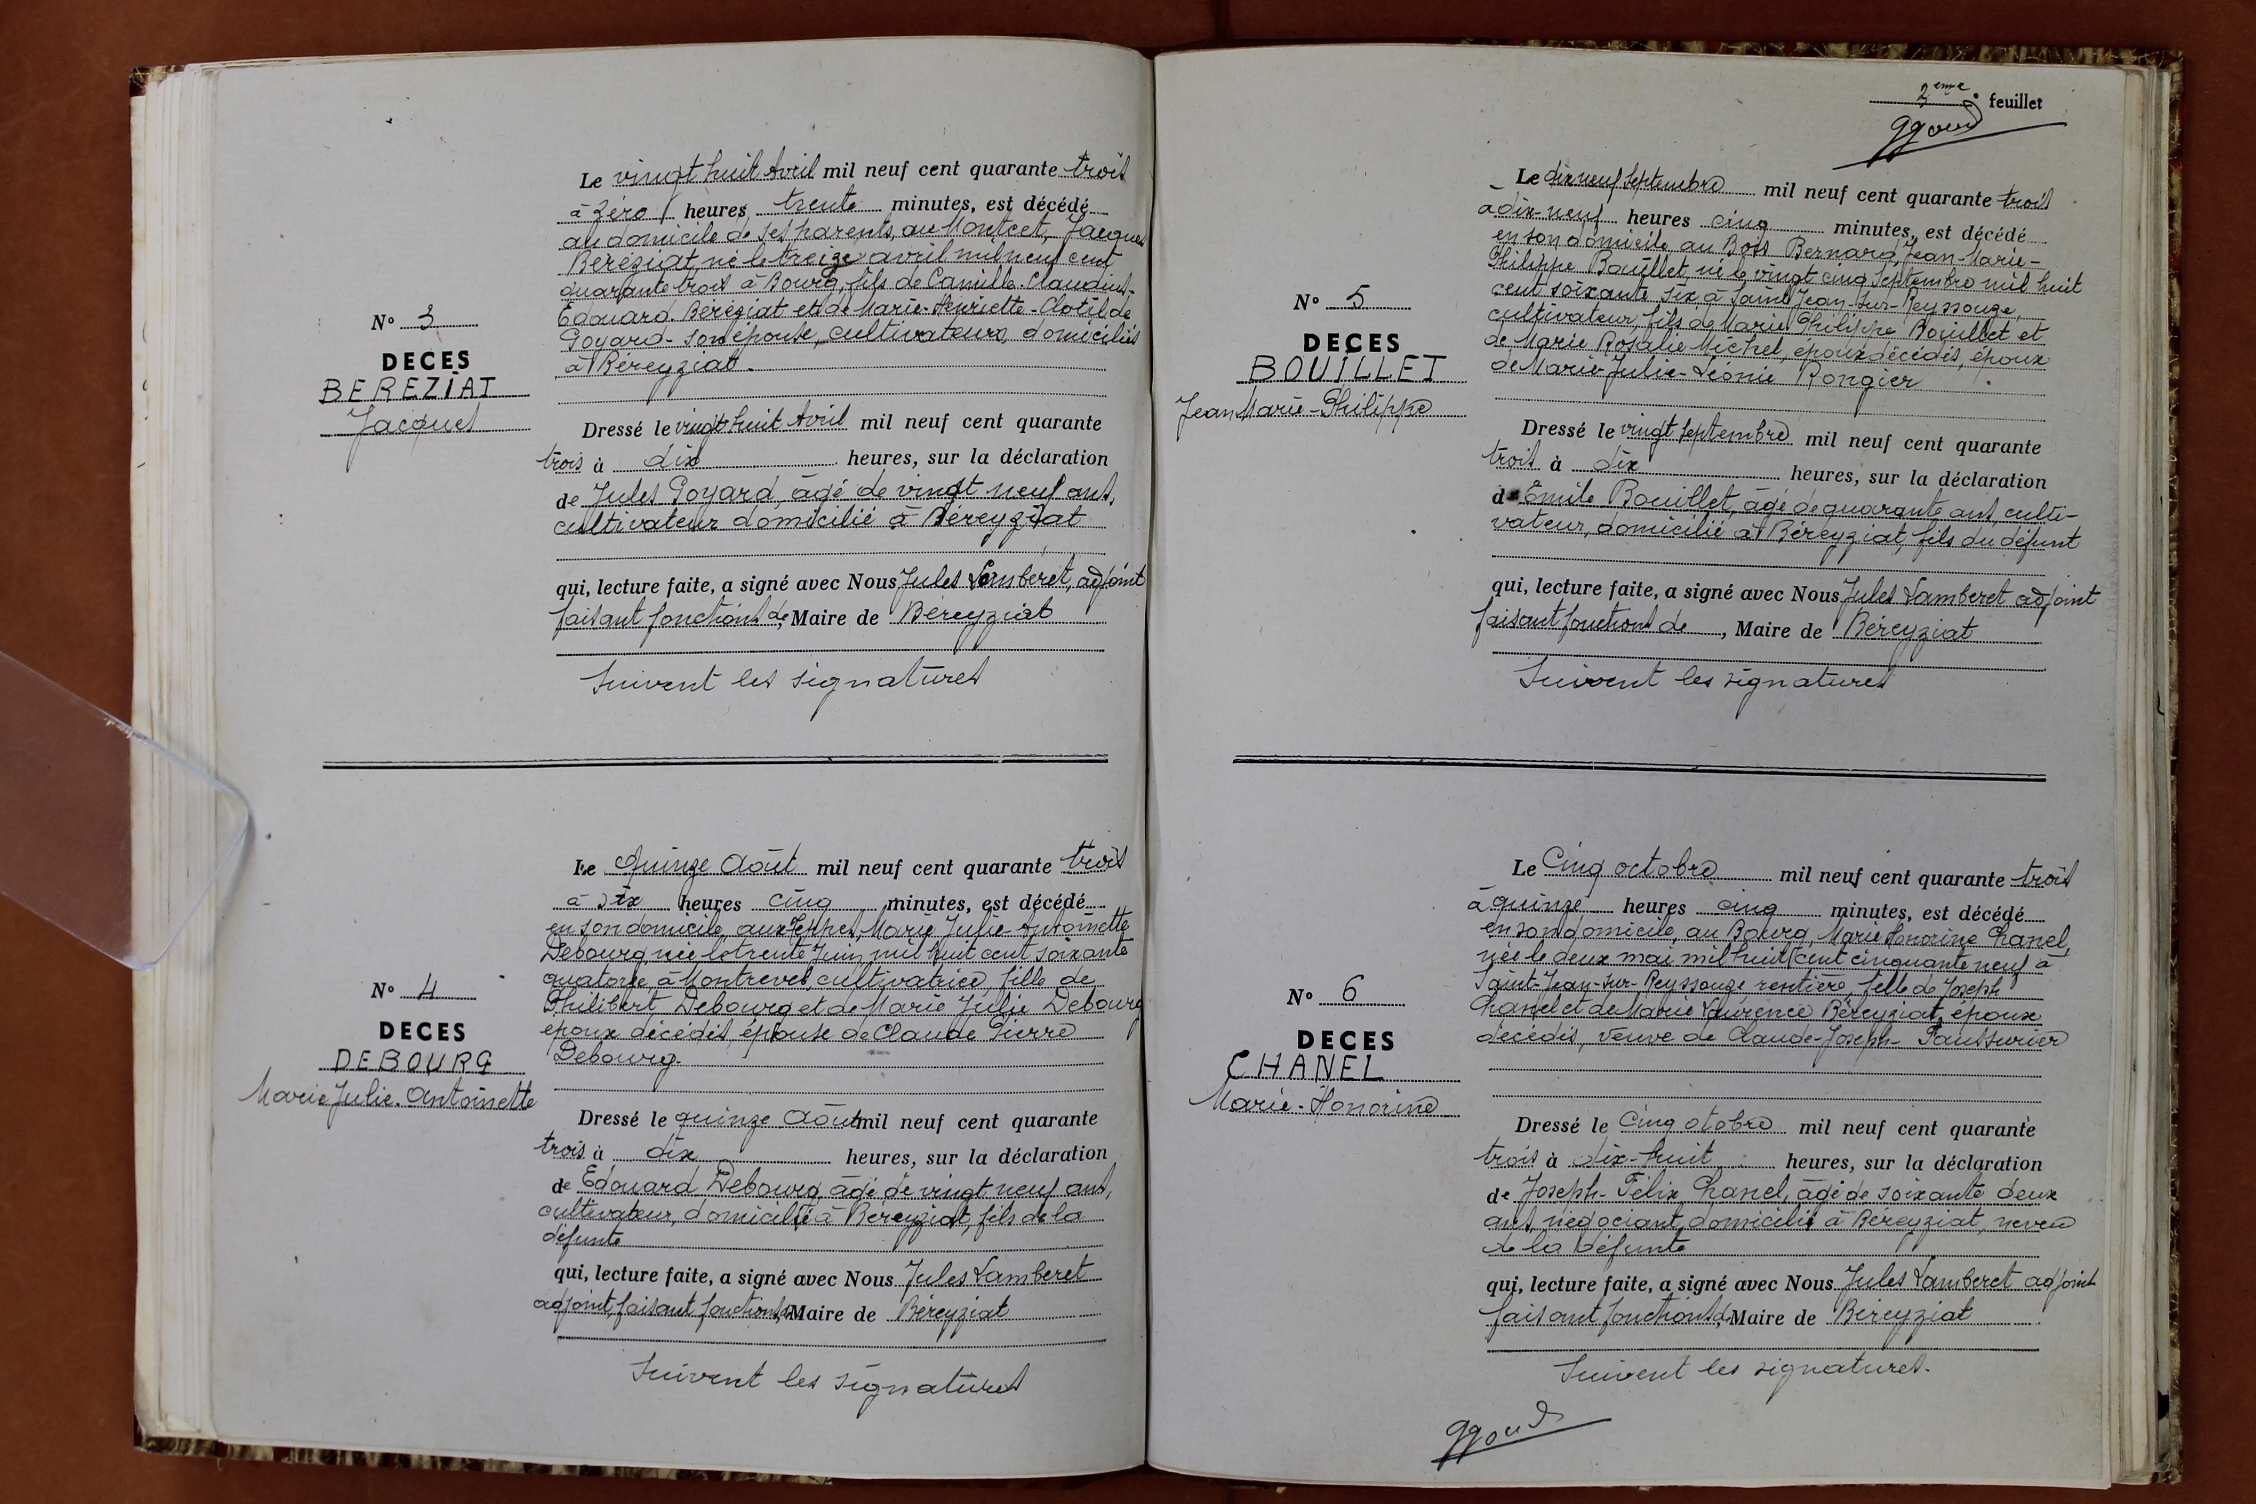 Le vingt huit Avril mil neuf cent quarante trois
à zéro heures trente minutes, est décédé
au domicile de ses parents, au Montcet, Jacques
Béréziat, né le treize avril mil neuf cent
quarante trois à Bourg, fils de Camille-Claudius-
Edouard Béréziat et de Marie-Henriette-Clotilde
Goyard son épouse, cultivateurs, domiciliés
à Béreyziat.
N° 3
DECES
BEREZIAT
Jacques
Dressé le vingt huit Avril mil neuf cent quarante
trois à dix heures, sur la déclaration
de Jules Goyard, âgé de vingt neuf ans,
cultivateur domicilié à Béreyziat
qui, lecture faite, a signé avec Nous Jules Lamberet, adjoint
faisant fonctions de, Maire de Béreyziat
Suivent les signatures
Le quinze Août mil neuf cent quarante trois
à six heures cinq minutes, est décédé
en son domicile, aux Teppes, Marie Julie-Antoinette
Debourg, née le trente Juin mil huit cent soixante
quatorze, à Montrevel, cultivatrice, fille de
Philibert Debourg et de Marie Julie Debourg
époux décédés, épouse de Claude Pierre
Debourg.
N° 4
DECES
DEBOURG
Marie Julie-Antoinette
Dressé le quinze Août mil neuf cent quarante
trois à dix heures, sur la déclaration
de Edouard Debourg, âgé de vingt neuf ans,
cultivateur, domicilié à Béreyziat, fils de la
défunte
qui, lecture faite, a signé avec Nous Jules Lamberet
adjoint, faisant fonctions, Maire de Béreyziat
Suivent les signatures
2eme feuillet
Le dix neuf Septembre mil neuf cent quarante trois
à dix-neuf heures cinq minutes, est décédé
en son domicile au Bois Bernard, Jean-Marie-
Philippe Bouillet, né le vingt cinq Septembre mil huit
cent soixante six à Saint Jean-sur-Reyssouze,
cultivateur, fils de Marie Philippe Bouillet et
de Marie Rosalie Michel, époux décédés, époux
de Marie-Julie-Léonie Rongier
N° 5
DECES
BOUILLET
Jean Marie-Philippe
Dressé le vingt Septembre mil neuf cent quarante
trois à dix heures, sur la déclaration
d Emile Bouillet, âgé de quarante ans, culti-
vateur, domicilié à Béreyziat, fils du défunt
qui, lecture faite, a signé avec Nous Jules Lamberet adjoint
faisant fonctions de, Maire de Béreyziat
Suivent les signatures
Le Cinq octobre mil neuf cent quarante trois
à quinze heures cinq minutes, est décédé
en son domicile, au Bourg, Marie Honorine Chanel,
née le deux mai mil huit cent cinquante neuf à
Saint-Jean-sur-Reyssouze rentière, fille de Joseph
Chanel et de Marie Laurence Béreyziat, époux
décédés, veuve de Claude-Joseph-
N° 6
DECES
CHANEL
Marie-Honorine
Dressé le Cinq otobre mil neuf cent quarante
trois à dix-huit heures, sur la déclaration
de Joseph-Félix Chanel, âgé de soixante deux
ans, négociant, domicilié à Béreyziat, neveu
de la défunte
qui, lecture faite, a signé avec Nous Jules Lamberet adjoint
faisant fonctions de, Maire de Béreyziat
Suivent les signatures.